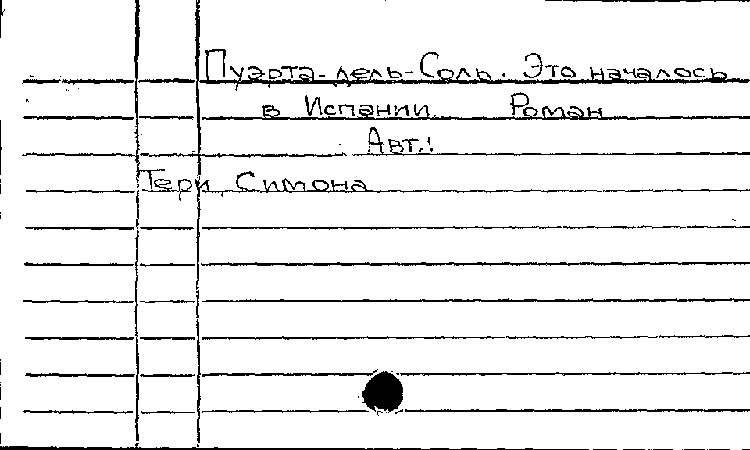 Пуэрта-дель-Соль. Это началось
в Испании Роман
Авт.:
Тери, Симона